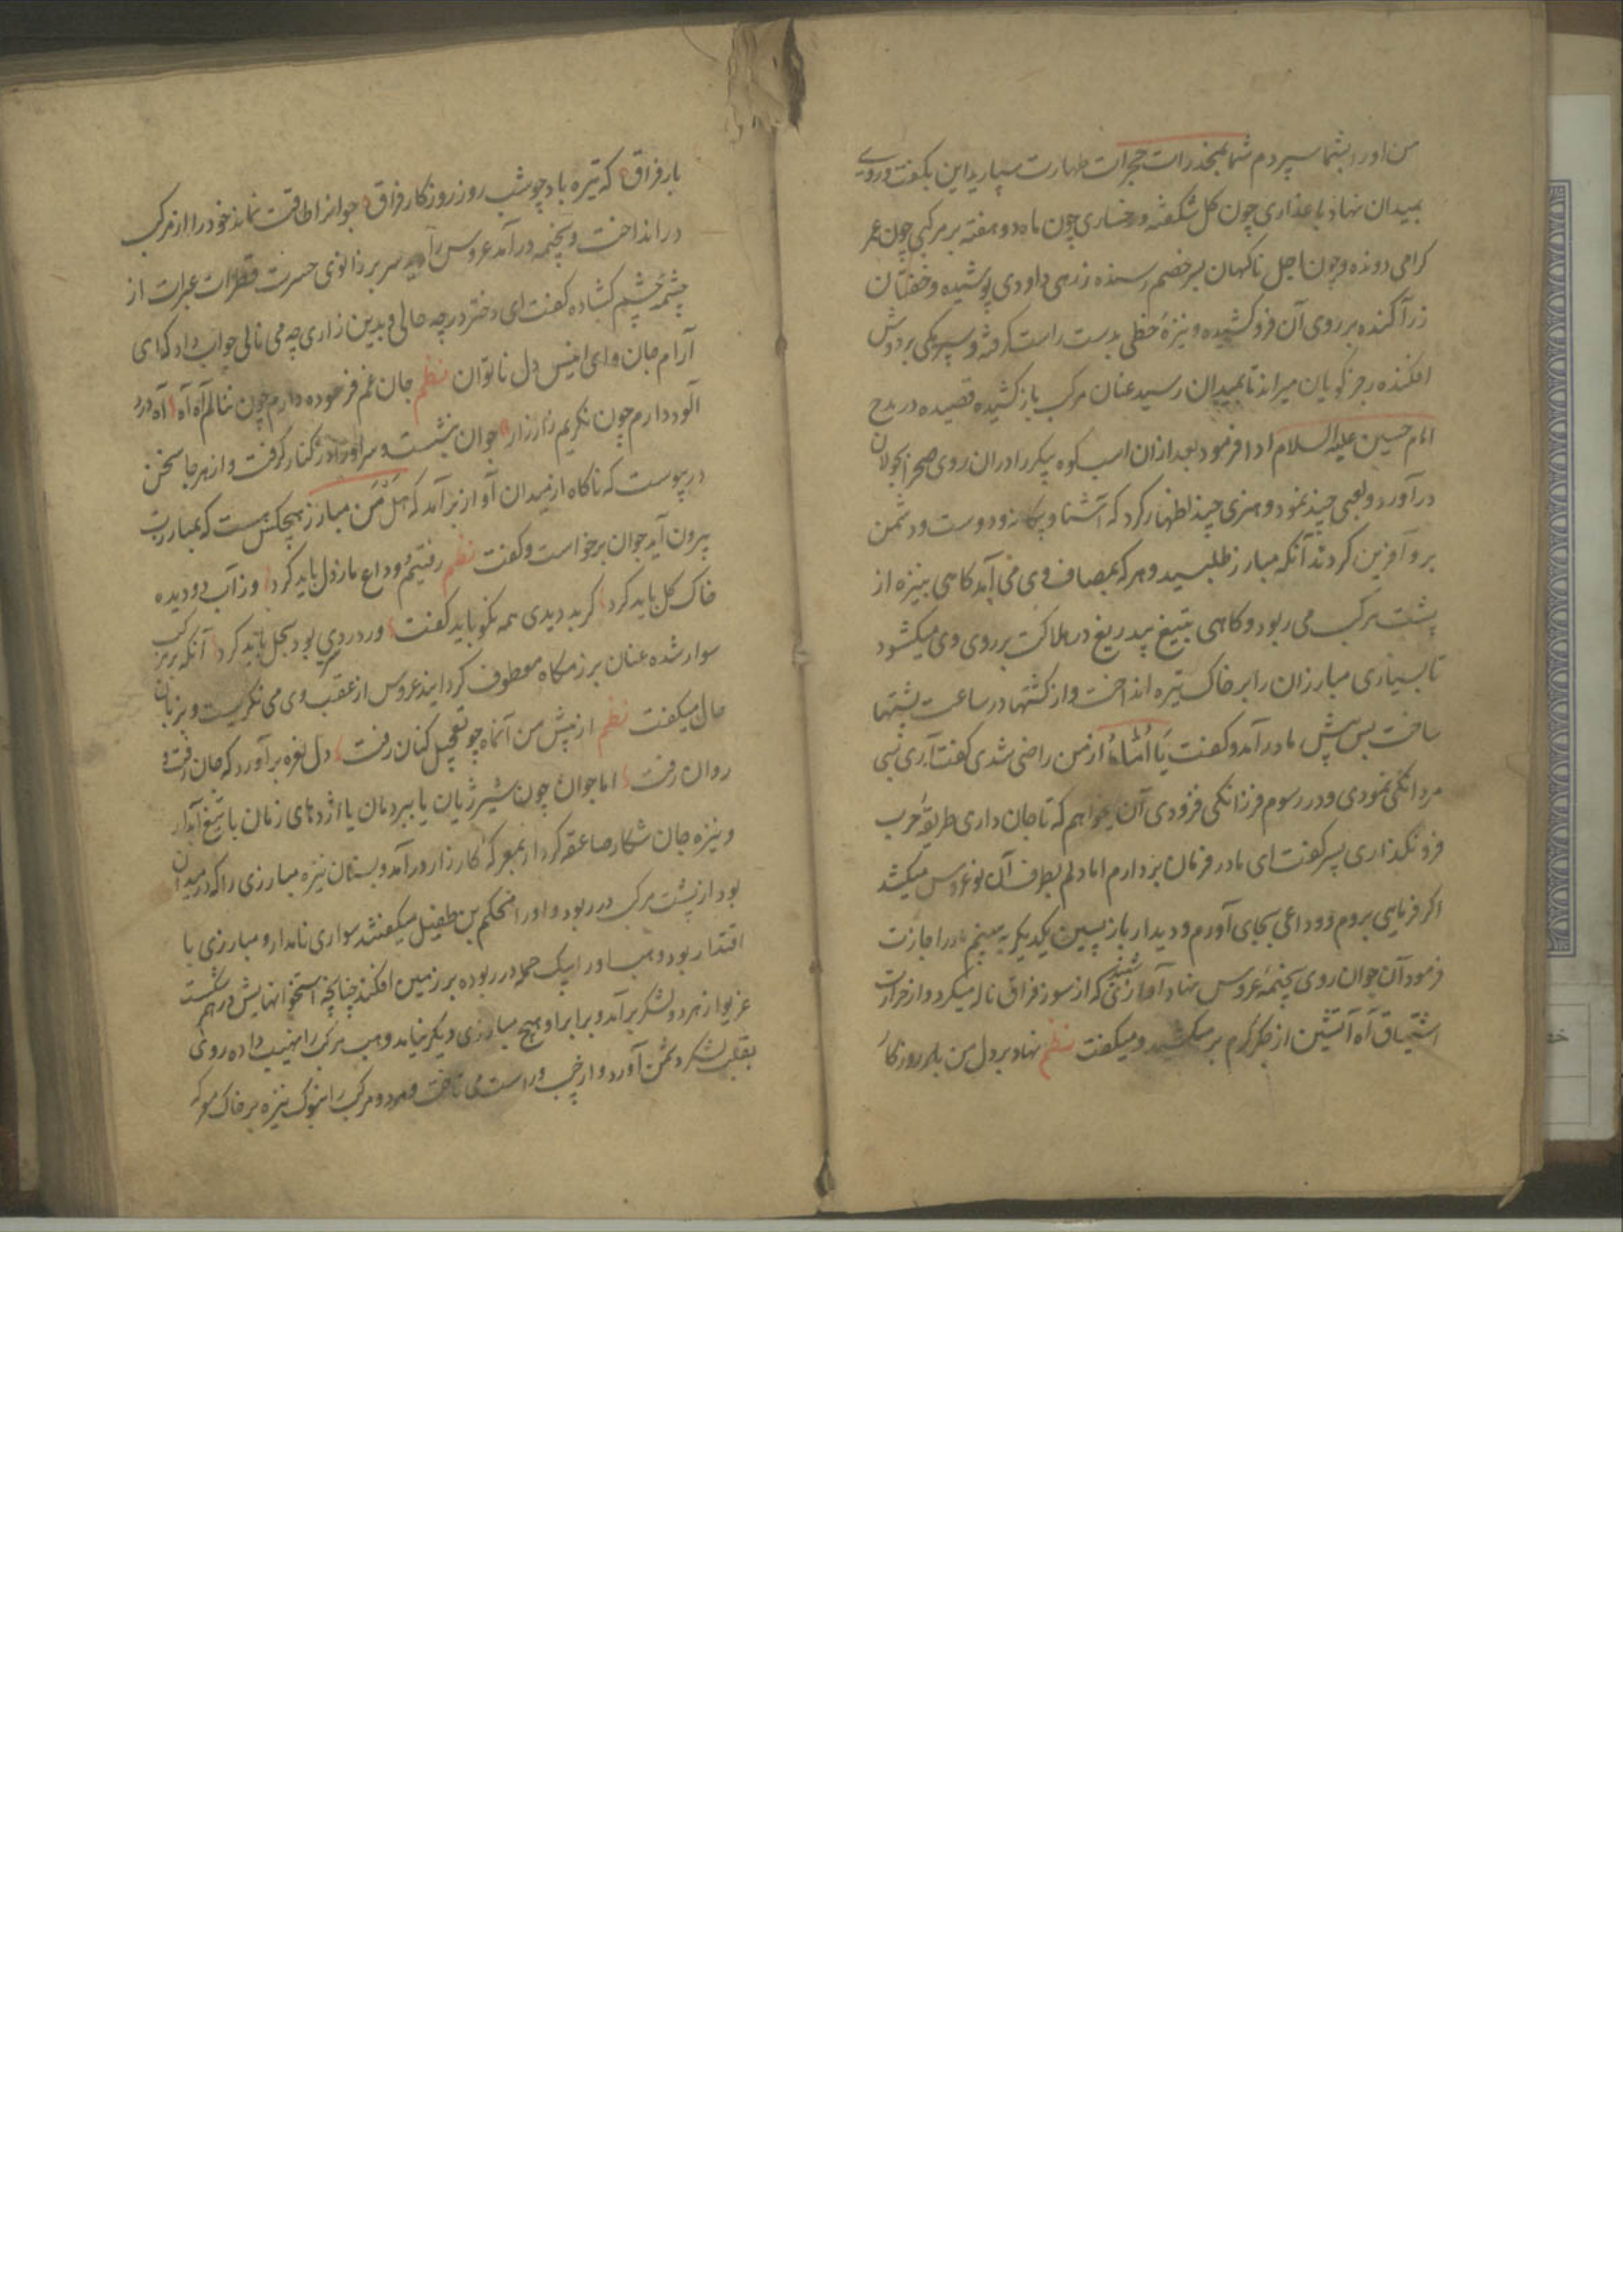 من او را بشما سپردم شما بمخدرات حجرات طهارت سپارید این بگفت و روی
بمیدان نهاد با عذاری چون گل شکفته و رخساری چون ماه دو هفته بر مرکبی چون عمر
گرامی دونده و چون اجل ناگهان بر خصم رسنده زرهی داودی پوشیده و خفتان
زرآکنده بر روی آن فرو کشیده و نیزهٔ خطی بدست راست گرفته و سپر مکی بر دوش
افکنده رجز گویان میراند تا بمیدان رسید عنان مرکب باز کشیده قصیده در مدح
امام حسین علیه السلام ادا فرمود بعد از ان اسب کوه پیکر را در ان روی صحرا بجولان
در آورد و لعبی چند نمود و هنری چند اظهار کرد که آشنا و بیکانه و دوست و دشمن
برو آفرین کردند آنکه مبارز طلبید و هر که بمصاف وی می آمد کاهی بنیزه از
پشت مرکب می ربود و کاهی بتیغ بیدریغ در هلاکت بر روی وی میکشود
تا بسیاری مبارزان را بر خاک تیره انداخت و از کشتها در ساعت پشتها
ساخت پس پیش مادر آمد و کفت یا اماه از من راضی شدی کفت آری نبی
مردانگی نمودی و در رسوم فرزانکی فزودی آن میخواهم که تا جان داری طریقهٔ حرب
فرو نگذاری پسر کفت ای مادر فرمان بردارم اما دلم بطرف آن نو عروس میکشد
اکر فرمایی بروم و وداعی بجای آورم و دیدار باز پسین یکدیکر به بینیم مادر اجازت
فرمود آن جوان روی بخیمهٔ عروس نهاد آواز شنید که از سوز فراق ناله میکرد و از حرارت
اشتیاق آه آتشین از جگر گرم بر میکشید و میکفت نظم نهاد بر دل من بار روزکار
بار فراق که تیره باد چو شب روز روزکار فراق جوانرا طاقت نماند خود را از مرکب
در انداخت و بخیمه در آمد عروس را دید سر بر زانوی حسرت قطرات عبرات از
چشمهٔ چشم کشاده کفت ای دختر در چه حالی و بدین زاری چه می نالی جواب داد که ای
آرام جان و ای انیس دل ناتوان نظم جان غم فرسوده دارم چون ننالم آه آه آه درد
آلود دارم چون نگریم زار زار جوان بنشست و سر او را در کنار گرفت و از هر جا سخن
در پیوست که ناکاه از میدان آواز بر آمد که هل من مبارز هیچکس هست که بمبارزت
بیرون آید جوان برخواست و کفت نظم رفتیم و وداع ما ز دل باید کرد وز آب دو دیده
خاک گل باید کرد کر بد دیدی همه نکو باید کفت ور دردی بود بحل باید کرد آنکه بر مرکب
سوار شده عنان برزمکاه معطوف گردانید عروس از عقب وی می نکریست و بزبان
حال میکفت نظم از پیش من آن ماه چو تعجیل کنان رفت دل نعره بر آورد که جان رفت و
روان رفت اما جوان چون شیر ژیان یا ببر دمان یا اژدهای زمان با تیغ آبدار
و نیزه جان شکار صاعقه کردار بمعرکه کارزار در آمد و بسنان نیزه مبارزی را که در میدان
بود از پشت مرکب در ربود و او را محکم بن طفیل میکفتند سواری نامدار و مبارزی با
اقتدار بود وهب او را بیک حمله در ربوده بر زمین افکند چنانچه استخوانهایش در هم شکست
غریو از هر دو لشکر بر آمد و برابر او هیچ مبارزی دیکر نیامد وهب مرکب را نهیب داده روی
بقلب لشکر دشمن آورد و از چپ و راست می تاخت و مرد و مرکب را بنوک نیزه بر خاک معرکه